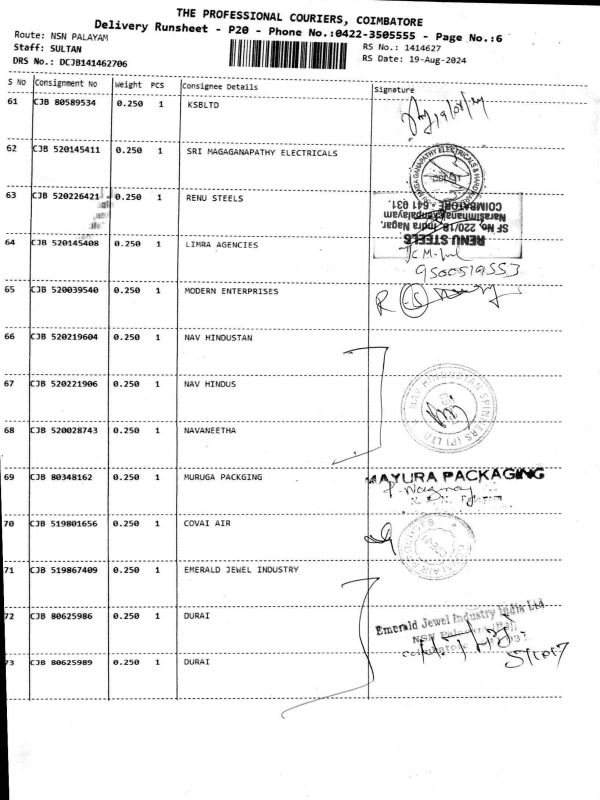 THE PROFESSIONAL COURIERS, COIMBATORE
Delivery Runsheet - P20 - Phone No.:0422-3505555 - Page No.:6
Route: NSN PALAYAM
RS No.: 1414627
Staff: SULTAN
RS Date: 19-Aug-2024
DRS No.: DCJB141462706
S No Consignment No Weight PCS Consignee Details Signature
61 CJB 80589534 0.250 1 KSBLTD
19/08/24
62 CJB 520145411 0.250 1 SRI MAGAGANAPATHY ELECTRICALS
63 CJB 520226421 0.250 1 RENU STEELS
RENU STEELS
SF No. 220/1B, Indra Nagar,
Narasimhanaickenpalayam
COIMBATORE - 641 031.
64 CJB 520145408 0.250 1 LIMRA AGENCIES
9500519553
65 CJB 520039540 0.250 1 MODERN ENTERPRISES
66 CJB 520219604 0.250 1 NAV HINDUSTAN
67 CJB 520221906 0.250 1 NAV HINDUS
NAV HINDUSTAN SPINNERS (P) LTD
68 CJB 520028743 0.250 1 NAVANEETHA
69 CJB 80348162 0.250 1 MURUGA PACKGING
MAYURA PACKAGING
70 CJB 519801656 0.250 1 COVAI AIR
71 CJB 519867409 0.250 1 EMERALD JEWEL INDUSTRY
72 CJB 80625986 0.250 1 DURAI
Emerald Jewel Industry India Ltd
73 CJB 80625989 0.250 1 DURAI